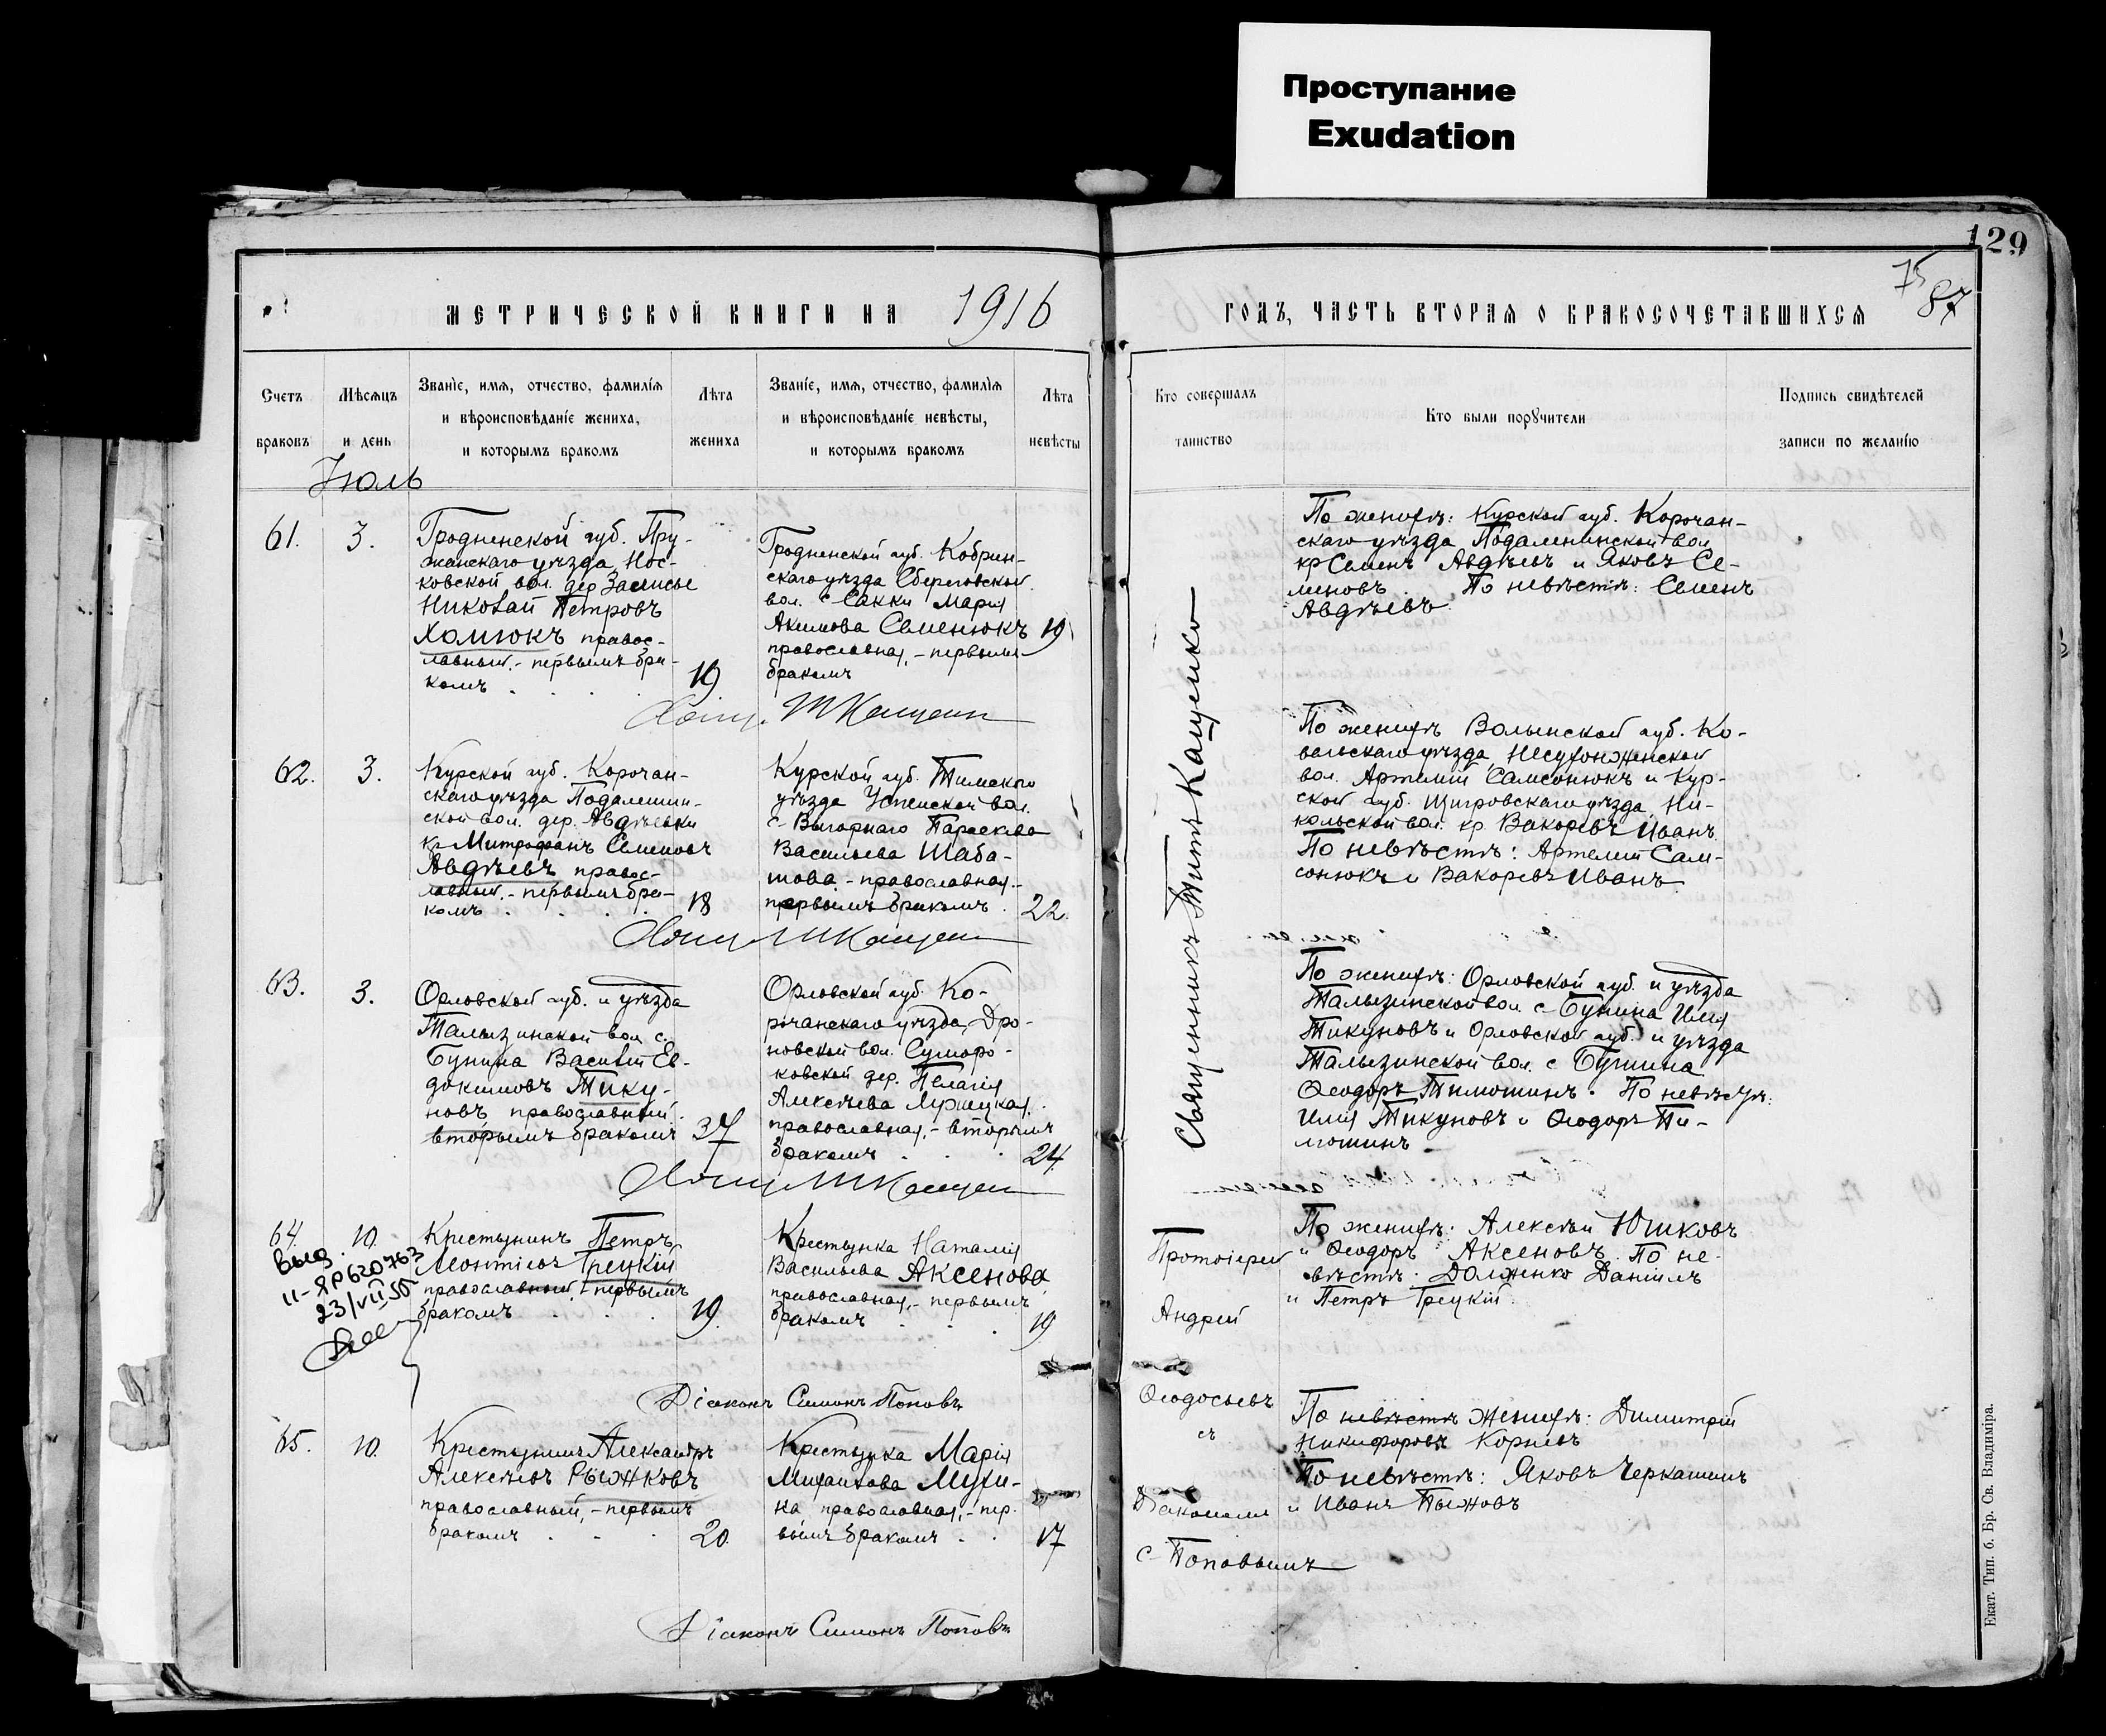 Проступание
Exudation
129
75
87
МЕТРИЧЕСКОЙ КНИГИ НА 1916
ГОДЪ, ЧАСТЬ ВТОРАЯ О БРАКОСОЧЕТАВШИХСЯ
Счетъ
браковъ
Мѣсяцъ
и день
Званіе, имя, отчество, фамилія
и вѣроисповѣданіе жениха,
и которымъ бракомъ
Лѣта
жениха
Званіе, имя, отчество, фамилія
и вѣроисповѣданіе невѣсты,
и которымъ бракомъ
Лѣта
невѣсты
Кто совершалъ
таинство
Кто были поручители
Подпись свидѣтелей
записи по желанію
Іюль
61.
3.
Гродненской губ. Пру-
жанскаго уѣзда Нос-
ковской вол. дер
Николай Петровъ
Хомюкъ правос-
лавный,- первымъ бра-
комъ
19
Гродненской губ. Кобрин-
скаго уѣзда
вол. с Сакки Марія
Акимова Семенюкъ
православная,- первымъ
бракомъ
19
По женихѣ: Курской губ. Корочан-
скаго уѣзда вол
кр Семенъ Авдѣевъ и Яковъ Се-
меновъ. По невѣстѣ: Семенъ
Авдѣевъ.
62.
3.
Курской губ. Корочан-
скаго уѣзда
ской вол. дер. Авдѣевки
кр Митрофанъ Семеновъ
Авдѣевъ правос-
лавный,- первымъ бра-
комъ
18
Курской губ. Тимскаго
уѣзда Успенской вол.
с Выгорнаго Параскева
Васильева Шаба-
шова - православная,-
первымъ бракомъ
22.
По женихѣ Волынской губ. Ко-
вельскаго уѣзда
вол. Артемій Самсонюкъ и Кур-
ской губ. Щигровскаго уѣзда Ни-
кольской вол. кр. Вакоревъ Иванъ.
По невѣстѣ: Артемій Сам-
сонюкъ и Вакоревъ Иванъ.
63.
3.
Орловской губ. и уѣзда
Талызинской вол с.
Бунина Василій Ев-
докимовъ Тику-
новъ православный.
вторымъ бракомъ
37
Орловской губ. Ко-
рочанскаго уѣзда, Дро-
новской вол.
ковской дер. Пелагія
Алексѣева Лужецкая,
православная,- вторымъ
бракомъ
24.
По женихѣ: Орловской губ. и уѣзда
Талызинской вол с Бунина Илія
Тикуновъ и Орловской губ. и уѣзда
Талызинской вол. с Бунина
Ѳеодоръ Тимошинъ. По невѣстѣ:
Илія Тикуновъ и Ѳеодоръ Ти-
мошинъ
Священникъ Титъ Кащенко
64.
10.
Крестьянинъ Петръ
Леонтіевъ Грецкій
православный,- первымъ
бракомъ
19.
Крестьянка Наталія
Васильева Аксенова
православная,- первымъ
бракомъ
19
выд.
II-ЯР 620763
23/VII 50
Протоіерей
Андрей
Ѳеодосьевъ
съ
Діакономъ
С Поповымъ
По женихѣ: Алексѣй Юшковъ
и Ѳеодоръ Аксеновъ. По не-
вѣстѣ: Долженко Даніилъ
и Петръ Грецкій.
Діаконъ Симонъ Поповъ
65.
10.
Крестьянинъ Александръ
Алексѣевъ Рыжковъ
православный,- первымъ
бракомъ
20.
Крестьянка Марія
Михайлова Мухи-
на, православная,- пер-
вымъ бракомъ
17
По невѣстѣ женихѣ: Димитрій
Никифоровъ Корневъ
По невѣстѣ: Яковъ Черкашинъ
и Иванъ Пыжовъ
Діаконъ Симонъ Поповъ
Екат. Тип. б. Бр. Св. Владиміра.